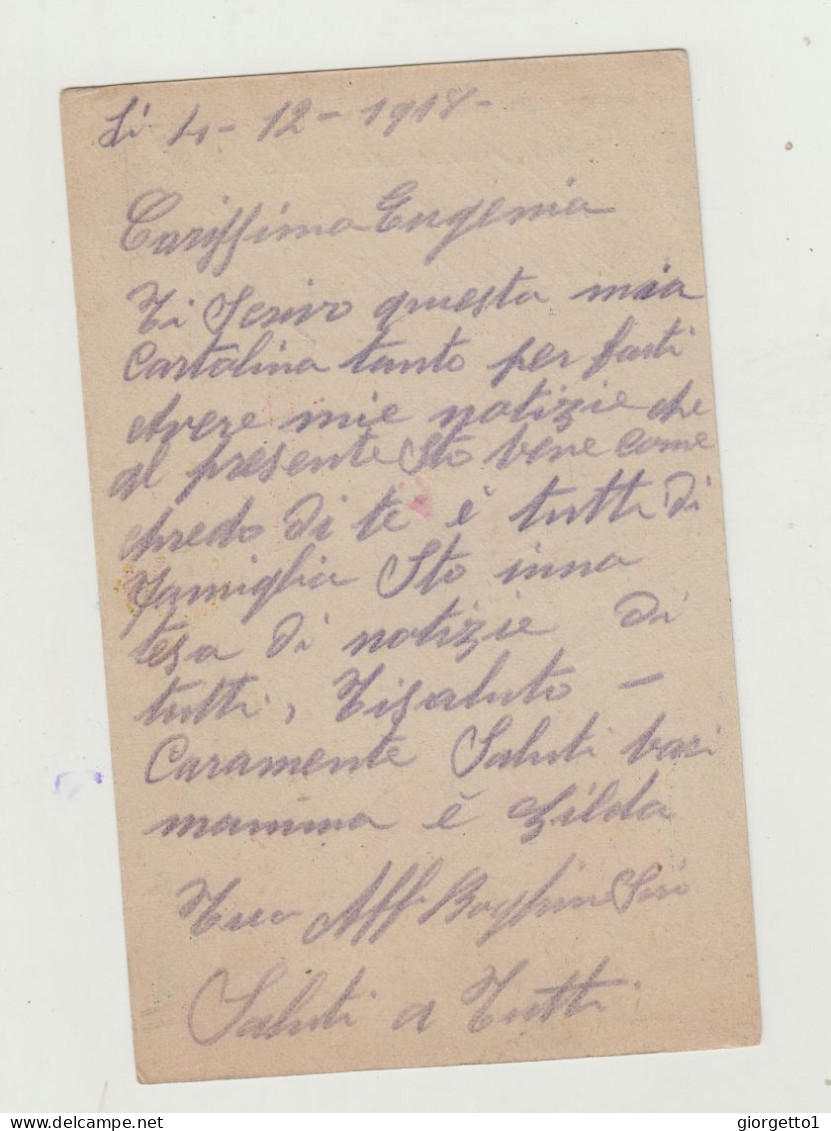 Li 4-12-1918-
Carissima Eugenia
Ti Scrivo questa mia
Cartolina tanto per farti
Avere mie notizie che
al presente Sto bene come
chredo di te è tutti di
Famiglia Sto inna
tesa di notizie di
tutti, Tisaluto -
Caramente Saluti baci
mamma è Gilda
Tuo Aff
Saluti a Tutti
www.delcampe.net
giorgetto1